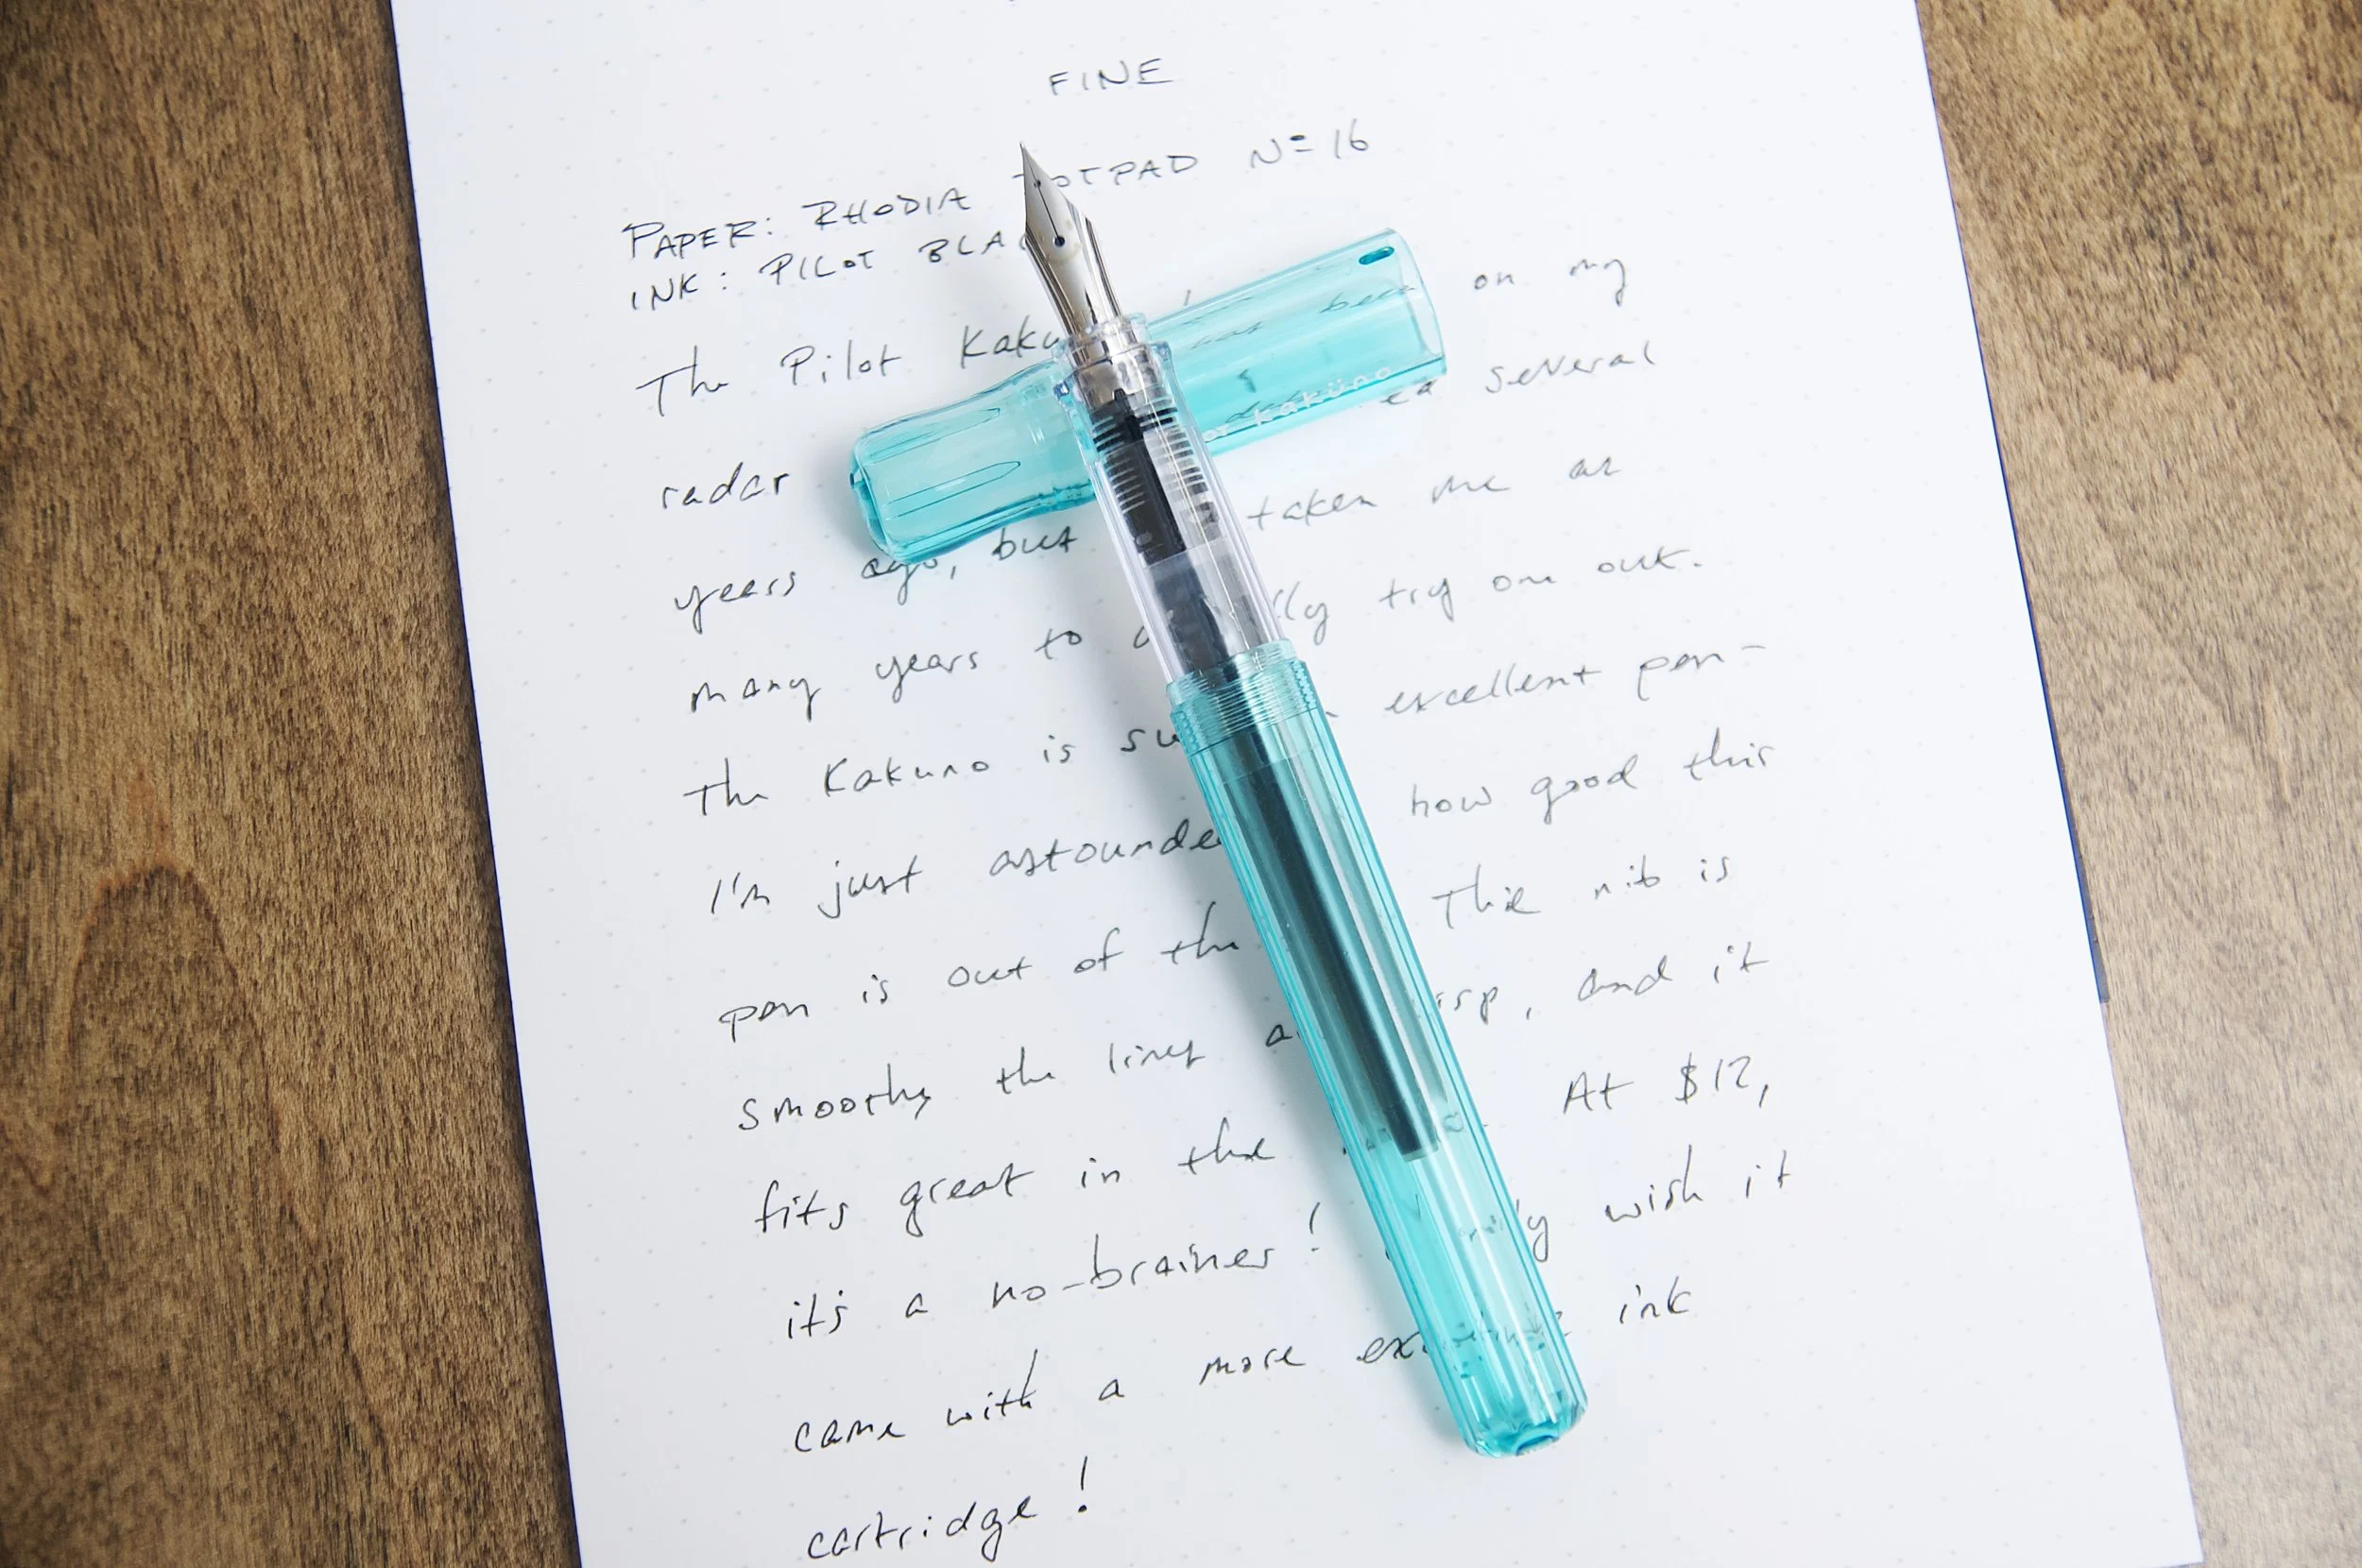 FINE
PAPER: RHODIA DOTPAD Nº 16
INK: PILOT BLA
The Pilot Kaku has been on my
radar ed several
years ago, but taken me as
many years to lly try one out.
The Kakuno is su excellent pen–
I'm just astounde how good this
pen is out of the This nib is
smooth, the lines a isp, and it
fits great in the At $12,
it's a no-brainer! only wish it
came with a more exciting ink
cartridge!
kaküno